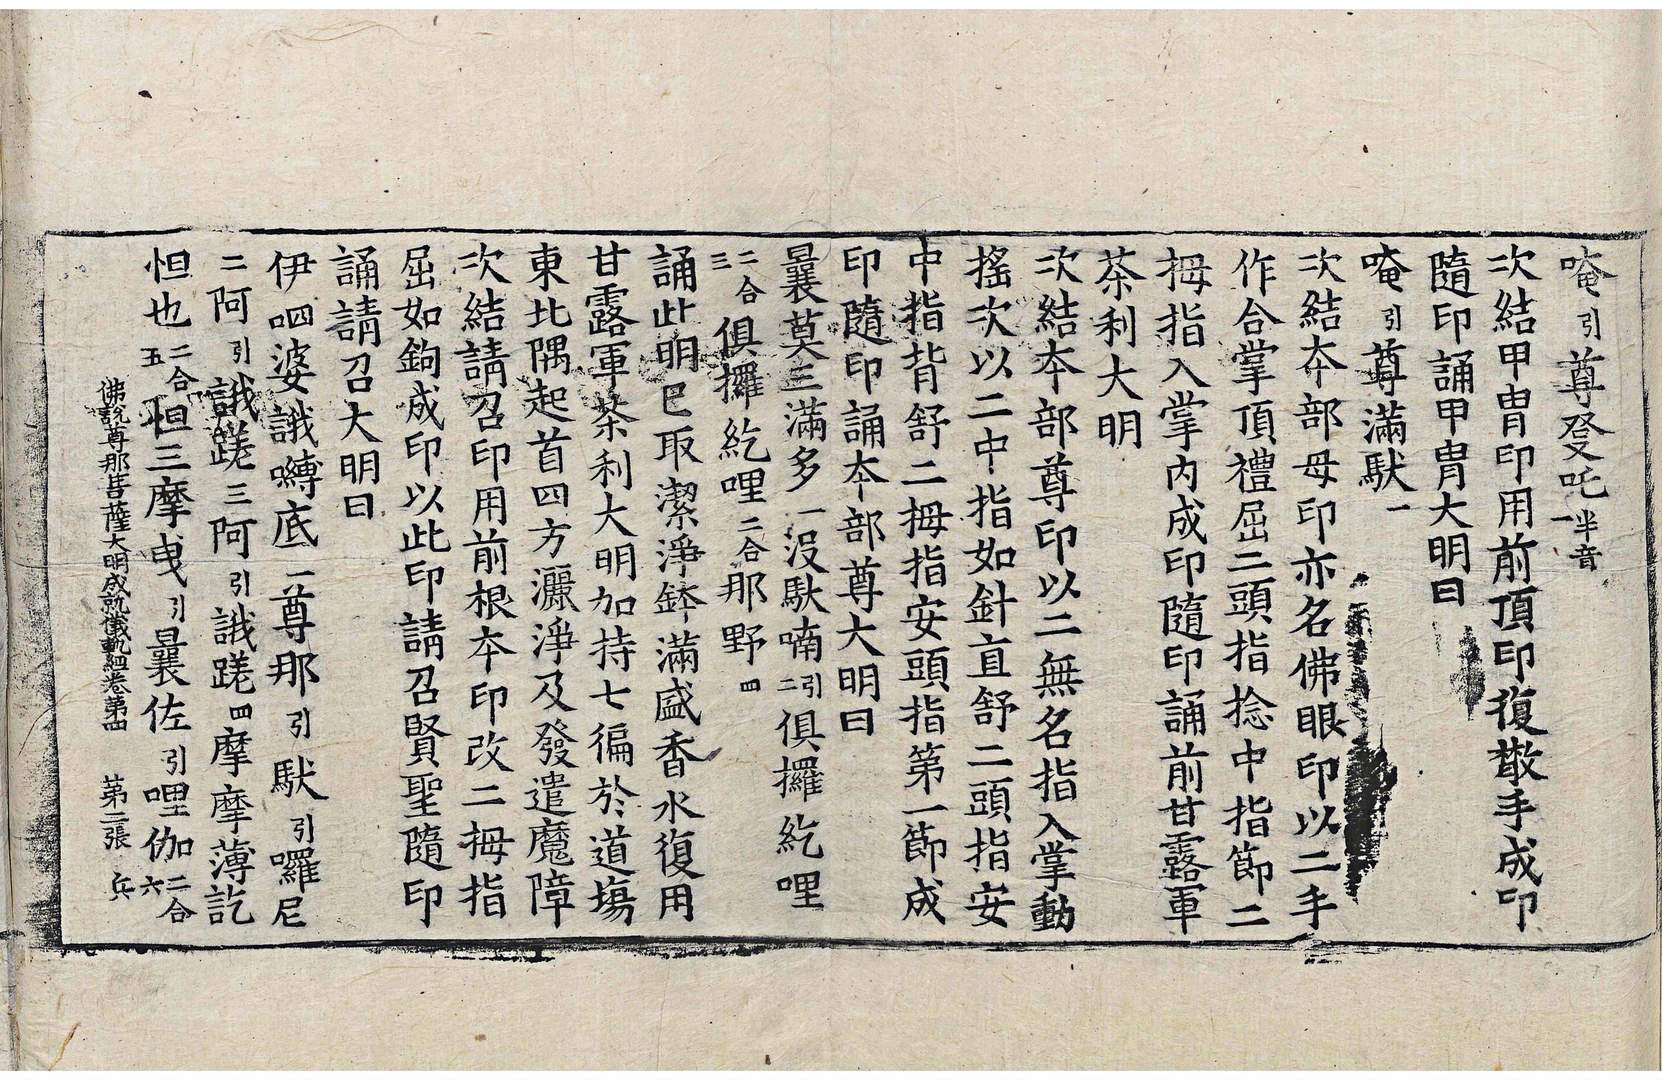 唵引尊發吒半音一
次結甲冑印用前頂印復散手成印
隨印誦甲冑大明曰
唵引尊滿馱一
次結本部母印亦名佛眼印以二手
作合掌頂禮屈二頭指捻中指節二
拇指入掌內成印隨印誦前甘露軍
茶利大明
次結本部尊印以二無名指入掌動
搖次以二中指如針直舒二頭指安
中指背舒二拇指安頭指第一節成
印隨印誦本部尊大明曰
曩莫三滿多一沒馱喃引二俱攞紇哩
二合三俱攞紇哩二合那野四
誦此明已取潔淨鉢滿盛香水復用
甘露軍茶利大明加持七徧於道場
東北隅起首四方灑淨及發遣魔障
次結請召印用前根本印改二拇指
屈如鉤成印以此印請召賢聖隨印
誦請召大明曰
伊呬婆誐嚩底一尊那引馱引囉尼
二阿引誐蹉三阿引誐蹉四摩摩薄訖
怛也二合五怛三摩曳引曩佐引哩伽二合六
佛說尊那菩薩大明成就儀軌經卷第四 第二張 兵